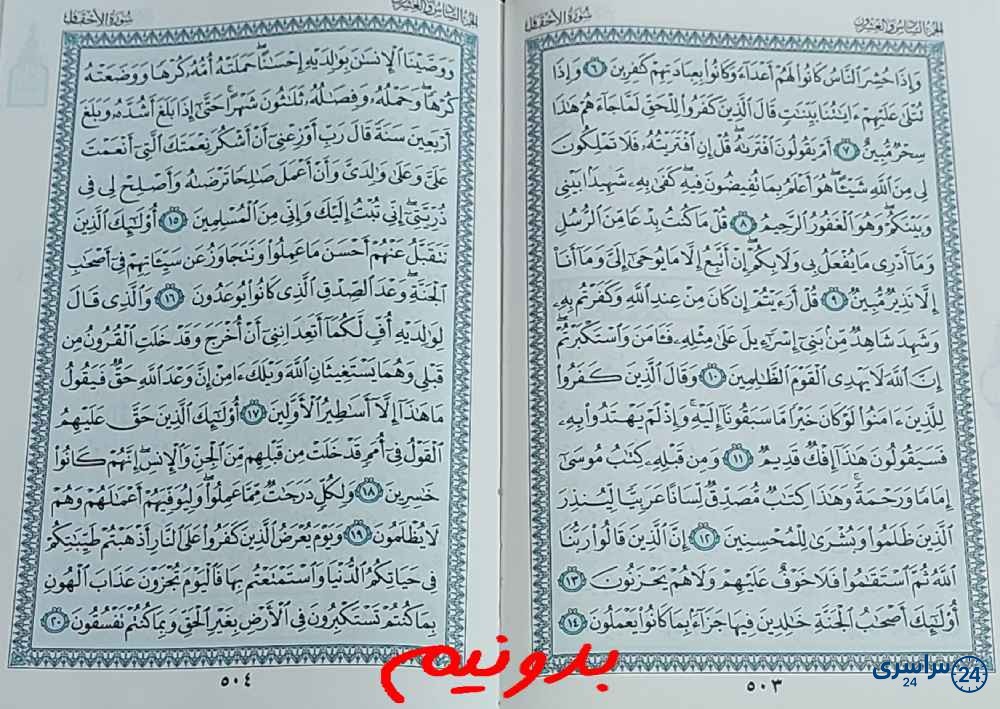 الجزء السادس والعشرون
سورة الأحقاف
وَإِذَا حُشِرَ ٱلنَّاسُ كَانُوا۟ لَهُمْ أَعْدَآءً وَكَانُوا۟ بِعِبَادَتِهِمْ كَٰفِرِينَ ٦ وَإِذَا
تُتْلَىٰ عَلَيْهِمْ ءَايَٰتُنَا بَيِّنَٰتٍ قَالَ ٱلَّذِينَ كَفَرُوا۟ لِلْحَقِّ لَمَّا جَآءَهُمْ هَٰذَا
سِحْرٌ مُّبِينٌ ٧ أَمْ يَقُولُونَ ٱفْتَرَىٰهُ ۖ قُلْ إِنِ ٱفْتَرَيْتُهُۥ فَلَا تَمْلِكُونَ
لِى مِنَ ٱللَّهِ شَيْـًٔا ۖ هُوَ أَعْلَمُ بِمَا تُفِيضُونَ فِيهِ ۖ كَفَىٰ بِهِۦ شَهِيدًۢا بَيْنِى
وَبَيْنَكُمْ ۖ وَهُوَ ٱلْغَفُورُ ٱلرَّحِيمُ ٨ قُلْ مَا كُنتُ بِدْعًا مِّنَ ٱلرُّسُلِ
وَمَآ أَدْرِى مَا يُفْعَلُ بِى وَلَا بِكُمْ ۖ إِنْ أَتَّبِعُ إِلَّا مَا يُوحَىٰٓ إِلَىَّ وَمَآ أَنَا۠
إِلَّا نَذِيرٌ مُّبِينٌ ٩ قُلْ أَرَءَيْتُمْ إِن كَانَ مِنْ عِندِ ٱللَّهِ وَكَفَرْتُم بِهِۦ
وَشَهِدَ شَاهِدٌ مِّنۢ بَنِىٓ إِسْرَٰٓءِيلَ عَلَىٰ مِثْلِهِۦ فَـَٔامَنَ وَٱسْتَكْبَرْتُمْ ۖ
إِنَّ ٱللَّهَ لَا يَهْدِى ٱلْقَوْمَ ٱلظَّٰلِمِينَ ١٠ وَقَالَ ٱلَّذِينَ كَفَرُوا۟
لِلَّذِينَ ءَامَنُوا۟ لَوْ كَانَ خَيْرًا مَّا سَبَقُونَآ إِلَيْهِ ۚ وَإِذْ لَمْ يَهْتَدُوا۟ بِهِۦ
فَسَيَقُولُونَ هَٰذَآ إِفْكٌ قَدِيمٌ ١١ وَمِن قَبْلِهِۦ كِتَٰبُ مُوسَىٰٓ
إِمَامًا وَرَحْمَةً ۚ وَهَٰذَا كِتَٰبٌ مُّصَدِّقٌ لِّسَانًا عَرَبِيًّا لِّيُنذِرَ
ٱلَّذِينَ ظَلَمُوا۟ وَبُشْرَىٰ لِلْمُحْسِنِينَ ١٢ إِنَّ ٱلَّذِينَ قَالُوا۟ رَبُّنَا
ٱللَّهُ ثُمَّ ٱسْتَقَٰمُوا۟ فَلَا خَوْفٌ عَلَيْهِمْ وَلَا هُمْ يَحْزَنُونَ ١٣
أُو۟لَٰٓئِكَ أَصْحَٰبُ ٱلْجَنَّةِ خَٰلِدِينَ فِيهَا جَزَآءًۢ بِمَا كَانُوا۟ يَعْمَلُونَ ١٤
٥٠٣
الجزء السادس والعشرون
سورة الأحقاف
وَوَصَّيْنَا ٱلْإِنسَٰنَ بِوَٰلِدَيْهِ إِحْسَٰنًا ۖ حَمَلَتْهُ أُمُّهُۥ كُرْهًا وَوَضَعَتْهُ
كُرْهًا ۖ وَحَمْلُهُۥ وَفِصَٰلُهُۥ ثَلَٰثُونَ شَهْرًا ۚ حَتَّىٰٓ إِذَا بَلَغَ أَشُدَّهُۥ وَبَلَغَ
أَرْبَعِينَ سَنَةً قَالَ رَبِّ أَوْزِعْنِىٓ أَنْ أَشْكُرَ نِعْمَتَكَ ٱلَّتِىٓ أَنْعَمْتَ
عَلَىَّ وَعَلَىٰ وَٰلِدَىَّ وَأَنْ أَعْمَلَ صَٰلِحًا تَرْضَىٰهُ وَأَصْلِحْ لِى فِى
ذُرِّيَّتِىٓ ۖ إِنِّى تُبْتُ إِلَيْكَ وَإِنِّى مِنَ ٱلْمُسْلِمِينَ ١٥ أُو۟لَٰٓئِكَ ٱلَّذِينَ
نَتَقَبَّلُ عَنْهُمْ أَحْسَنَ مَا عَمِلُوا۟ وَنَتَجَاوَزُ عَن سَيِّـَٔاتِهِمْ فِىٓ أَصْحَٰبِ
ٱلْجَنَّةِ ۖ وَعْدَ ٱلصِّدْقِ ٱلَّذِى كَانُوا۟ يُوعَدُونَ ١٦ وَٱلَّذِى قَالَ
لِوَٰلِدَيْهِ أُفٍّ لَّكُمَآ أَتَعِدَانِنِىٓ أَنْ أُخْرَجَ وَقَدْ خَلَتِ ٱلْقُرُونُ مِن
قَبْلِى وَهُمَا يَسْتَغِيثَانِ ٱللَّهَ وَيْلَكَ ءَامِنْ إِنَّ وَعْدَ ٱللَّهِ حَقٌّ فَيَقُولُ
مَا هَٰذَآ إِلَّآ أَسَٰطِيرُ ٱلْأَوَّلِينَ ١٧ أُو۟لَٰٓئِكَ ٱلَّذِينَ حَقَّ عَلَيْهِمُ
ٱلْقَوْلُ فِىٓ أُمَمٍ قَدْ خَلَتْ مِن قَبْلِهِم مِّنَ ٱلْجِنِّ وَٱلْإِنسِ ۖ إِنَّهُمْ كَانُوا۟
خَٰسِرِينَ ١٨ وَلِكُلٍّ دَرَجَٰتٌ مِّمَّا عَمِلُوا۟ ۖ وَلِيُوَفِّيَهُمْ أَعْمَٰلَهُمْ وَهُمْ
لَا يُظْلَمُونَ ١٩ وَيَوْمَ يُعْرَضُ ٱلَّذِينَ كَفَرُوا۟ عَلَى ٱلنَّارِ أَذْهَبْتُمْ طَيِّبَٰتِكُمْ
فِى حَيَاتِكُمُ ٱلدُّنْيَا وَٱسْتَمْتَعْتُم بِهَا فَٱلْيَوْمَ تُجْزَوْنَ عَذَابَ ٱلْهُونِ
بِمَا كُنتُمْ تَسْتَكْبِرُونَ فِى ٱلْأَرْضِ بِغَيْرِ ٱلْحَقِّ وَبِمَا كُنتُمْ تَفْسُقُونَ ٢٠
٥٠٤
بدونیم
سراسری 24
24